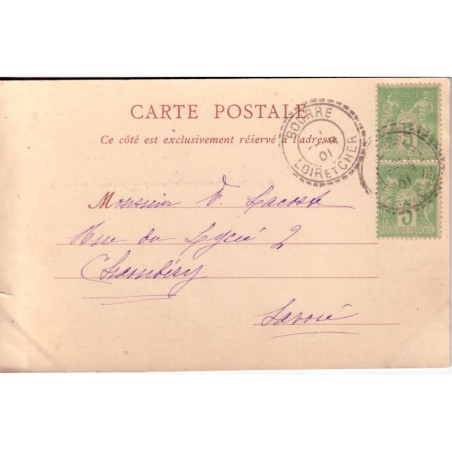 CARTE POSTALE
Ce côté est exclusivement réservé à l'adresse
BOURRE
01
LOIR ET CHER
5
5
Monsieur Lacoste
Rue du Lycée 2
Chambéry
Savoie